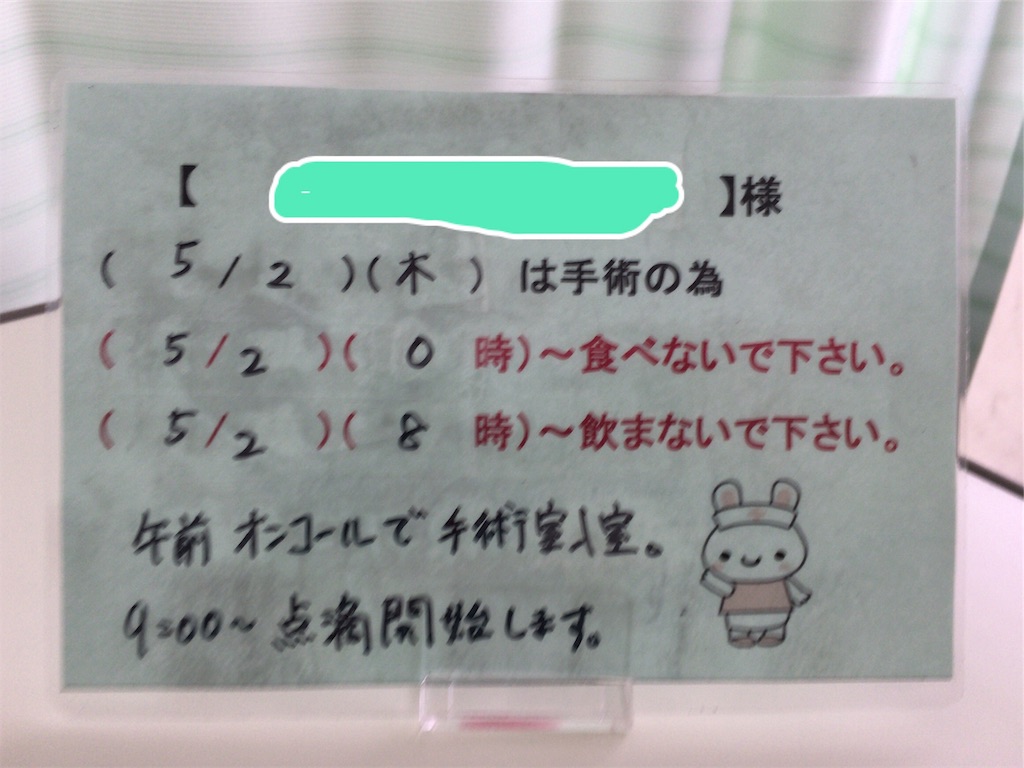 【 】様
( 5/2 )(木) は手術の為
( 5/2 )( 0 時)～食べないで下さい。
( 5/2 )( 8 時)～飲まないで下さい。
午前 オンコールで 手術室入室。
9:00～ 点滴開始します。